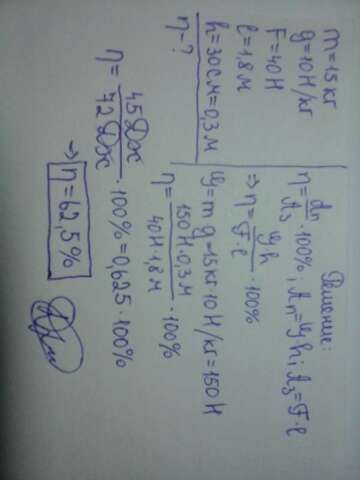 m=15 кг
g=10 Н/кг
F=40Н
l=1,8 м
h=30см=0,3 м
η-?
Решение:
η=Aп/Aз·100%; Aп=Gh; Aз=F·l
⇒ η=Gh/F·l·100%
G=mg=15кг·10Н/кг=150Н
η=150Н·0,3м/40Н·1,8м·100%
η=45Дж/72Дж·100%=0,625·100%
⇒ η=62,5%